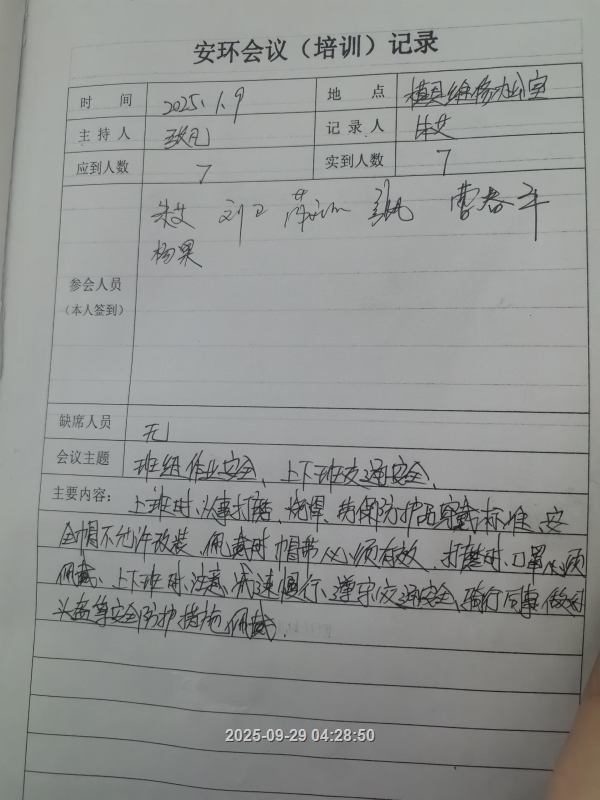 安环会议（培训）记录
时 间 2025.1.9 地 点 模具维修办公室
主 持 人 记 录 人 朱艾
应到人数 7 实到人数 7
朱艾 刘卫 曹春平
杨果
参会人员
（本人签到）
缺席人员 无
会议主题 班组作业安全、上下班交通安全、
主要内容： 上班时、从事打磨、烧焊、劳保防护品穿戴标准、安
全帽不允许改装、佩戴时帽带必须有效、打磨时、口罩必须
佩戴、上下班时、注意、减速慢行、遵守交通安全、骑行同事做好
头盔等安全防护措施佩戴.
2025-09-29 04:28:50